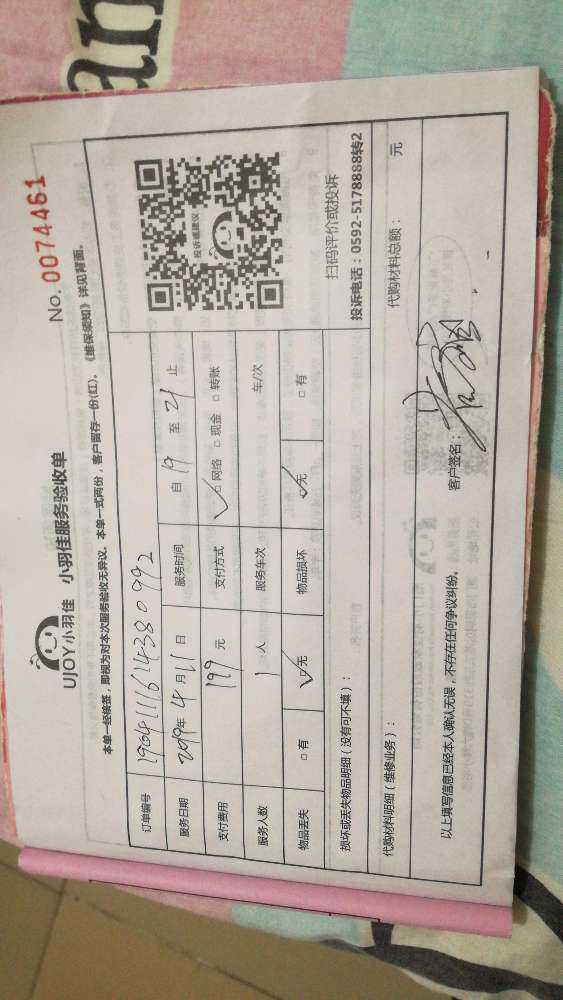 an
UJOY小羽佳 小羽佳服务验收单
No. 0074461
本单一经缮签,即视为对本次服务验收无异议。本单一式两份,客户留存一份(红)。《维保须知》详见背面。
订单编号 190411161438099２
服务日期 2019年4月11日 服务时间 自19至21止
支付费用 199元 支付方式 ☑网络 □现金 □转账
服务人数 1人 服务车次 车/次
物品丢失 □有 ☑无 物品损坏 ☑无 □有
投诉或建议
扫码评价或投诉
投诉电话:0592-5178888转2
损坏或丢失物品明细(没有可不填):
代购材料明细(维修业务): 代购材料总额: 元
以上填写信息已经本人确认无误,不存在任何争议纠纷。 客户签名: